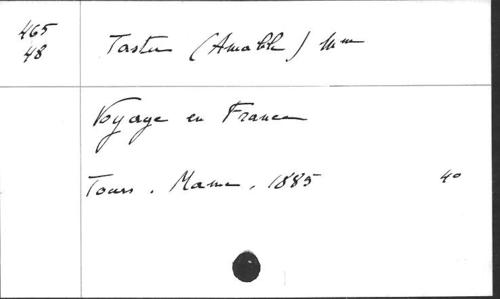 465
48
Tastu (Amable) Mme
Voyage en France
Tours. Mame, 1885 4o